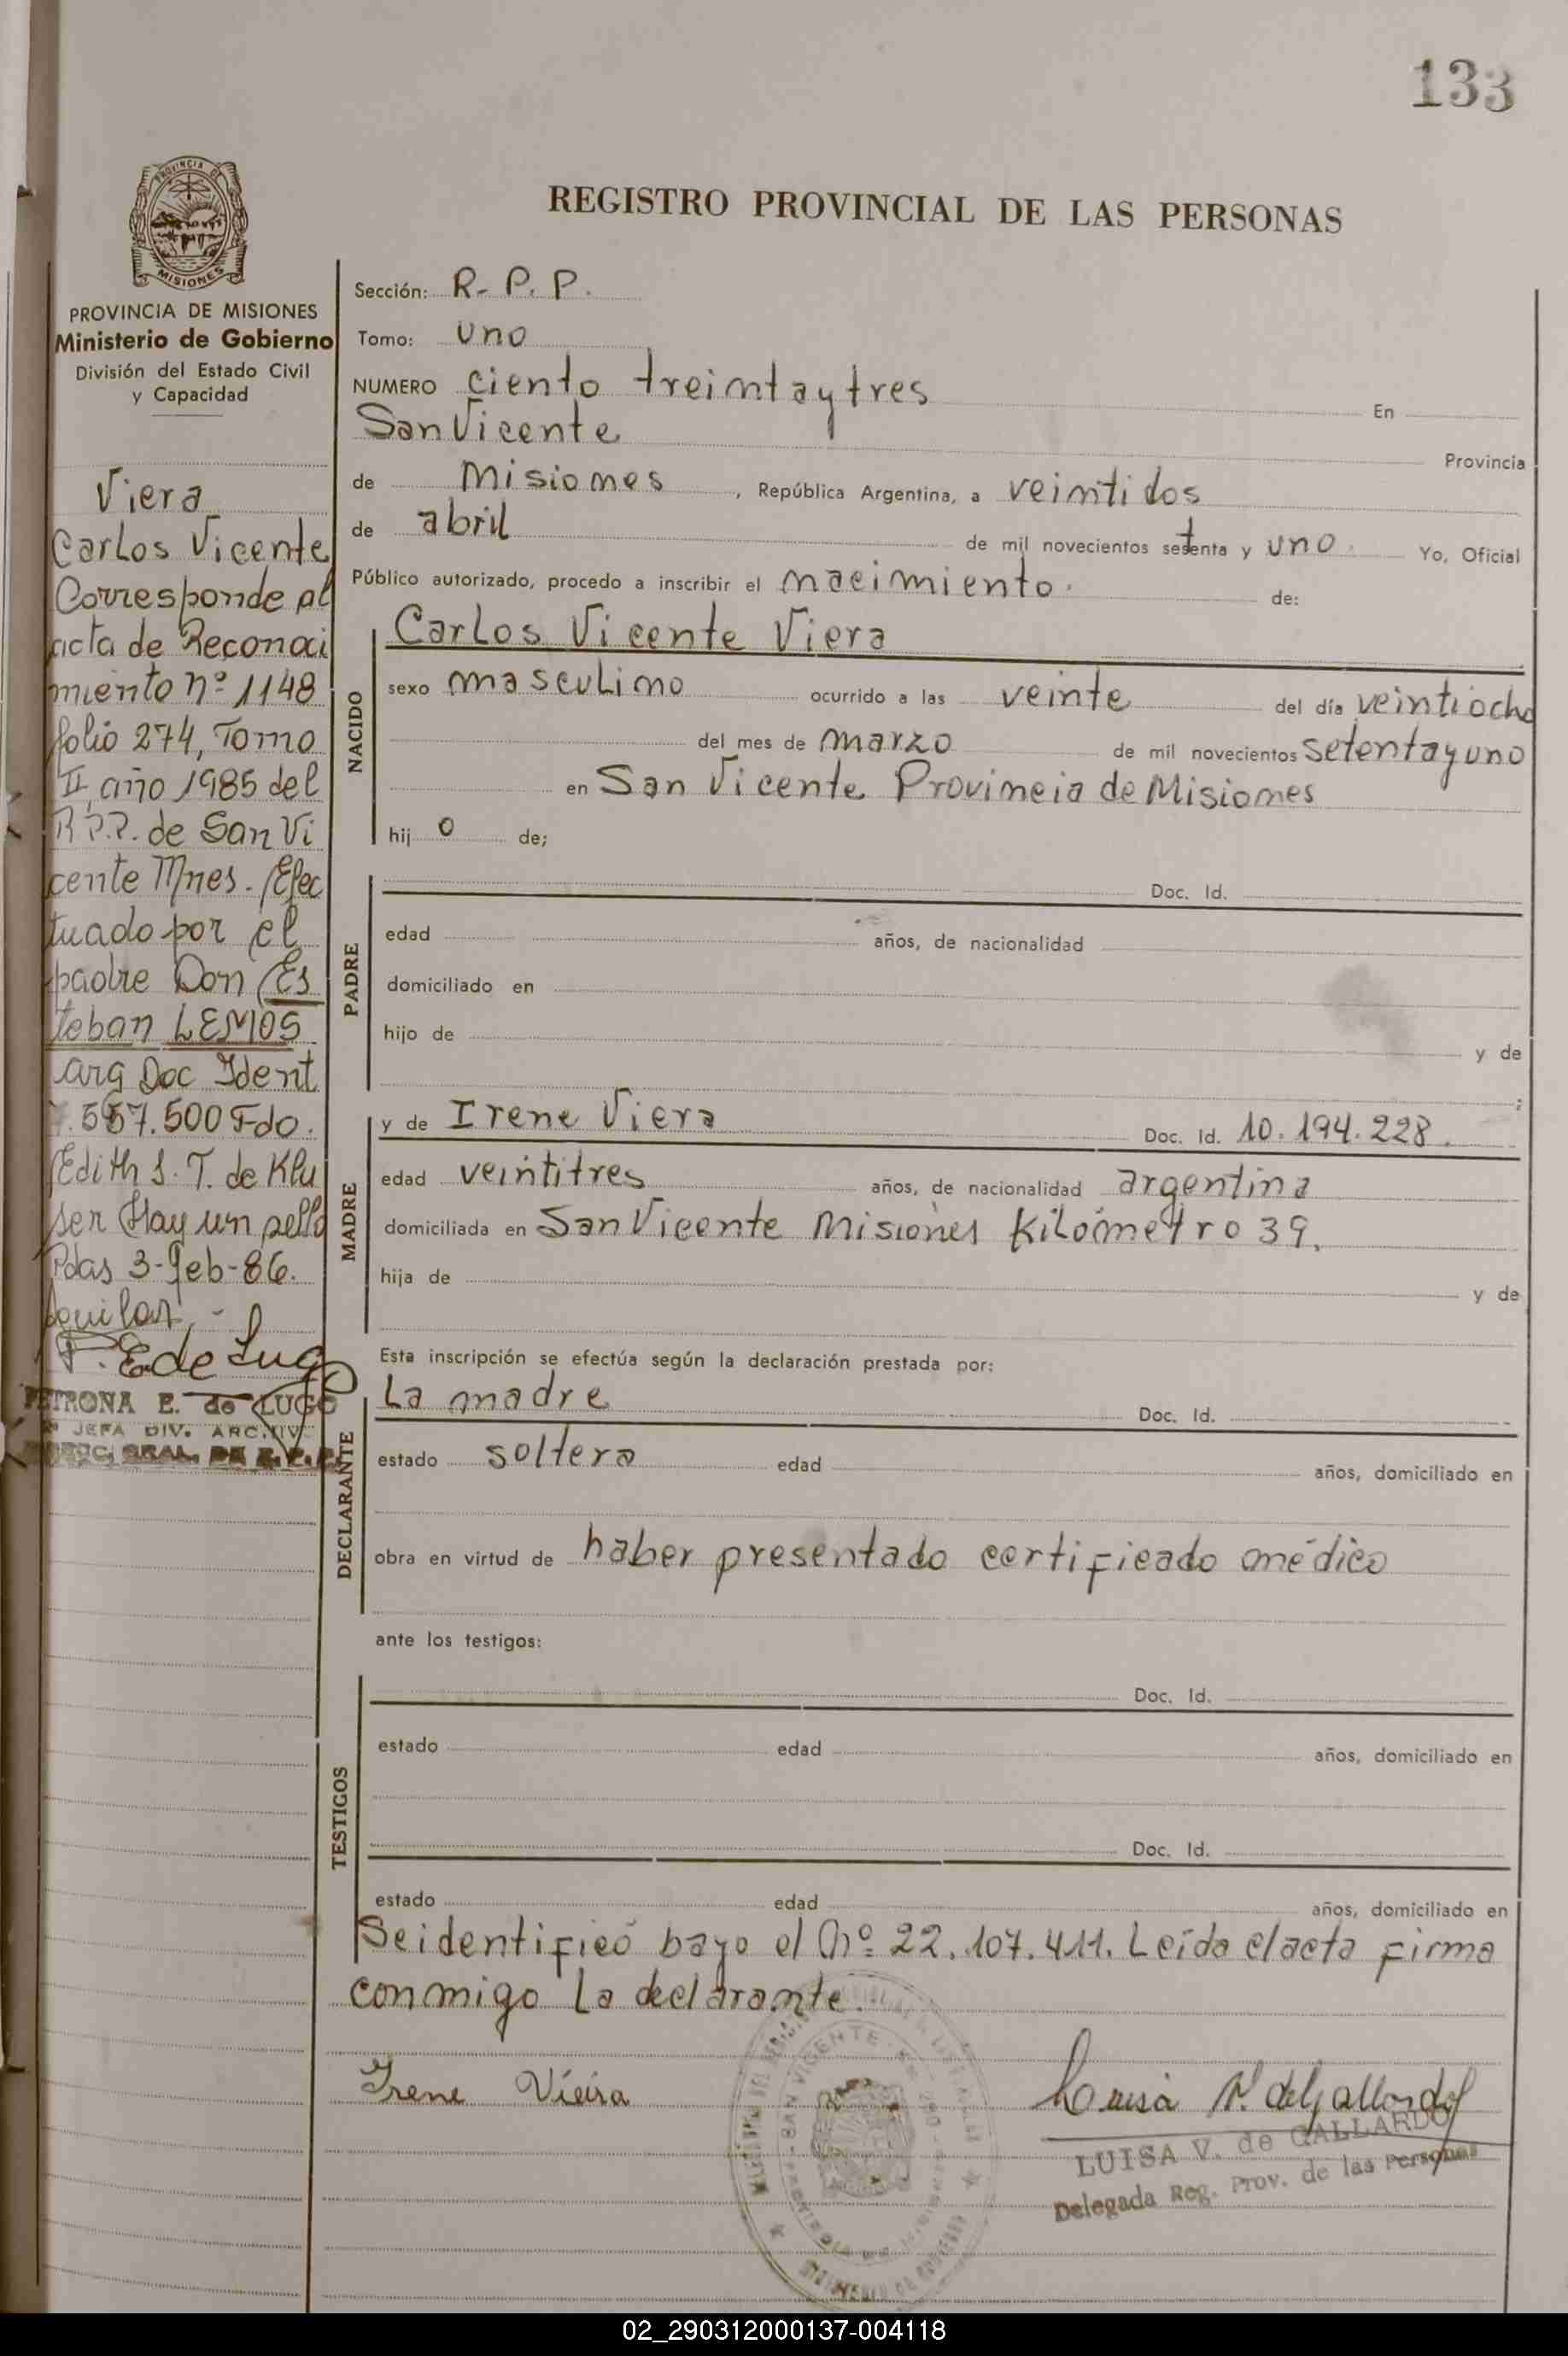 133
PROVINCIA DE
MISIONES
REGISTRO PROVINCIAL DE LAS PERSONAS
PROVINCIA DE MISIONES
Ministerio de Gobierno
División del Estado Civil
y Capacidad
Viera
Carlos Vicente
Corresponde al
acta de Reconoci
miento nº 1148
folio 274, Tomo
II año 1985 del
R.P.P. de San Vi
cente Mnes. Efec
tuado por el
padre Don Es
teban LEMOS
arg Doc Ident
.557.500 Fdo.
Edith S. T. de Klu
ser Hay un sello
Pdas 3-Feb-86.
Aguilar.-
P. E de Lugo
PETRONA E. de LUGO
JEFA DIV. ARCHIV.
Sección: R. P. P.
Tomo: uno
NUMERO ciento treinta y tres En
San Vicente Provincia
de Misiones, República Argentina, a veintidos
de abril de mil novecientos setenta y uno. Yo, Oficial
Público autorizado, procedo a inscribir el nacimiento. de:
NACIDO
Carlos Vicente Viera
sexo masculino ocurrido a las veinte del día veintiocho
del mes de marzo de mil novecientos setenta y uno
en San Vicente Provincia de Misiones
hij o de;
PADRE
Doc. Id.
edad años, de nacionalidad
domiciliado en
hijo de y de
;
MADRE
y de Irene Viera Doc. Id. 10.194.228.
edad veintitres años, de nacionalidad argentina
domiciliada en San Vicente Misiones Kilómetro 39.
hija de y de
Esta inscripción se efectúa según la declaración prestada por:
DECLARANTE
La madre Doc. Id.
estado soltera edad años, domiciliado en
obra en virtud de haber presentado certificado médico
ante los testigos:
TESTIGOS
Doc. Id.
estado edad años, domiciliado en
Doc. Id.
estado edad años, domiciliado en
Se identificó bajo el nº 22.107.411. Leída el acta firma
conmigo la declarante.
Irene Vieira
Luisa V. de Gallardo
LUISA V. de GALLARDO
Delegada Reg. Prov. de las Personas
SAN VICENTE
02_290312000137-004118